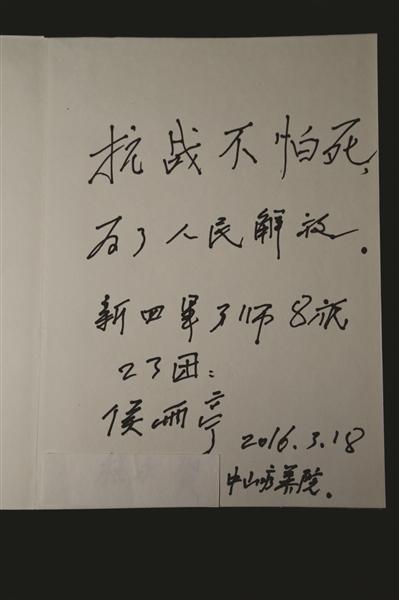 抗战不怕死,
为了人民解放.
新四军3师8旅
23团:
侯西亭
2016.3.18
中山疗养院.